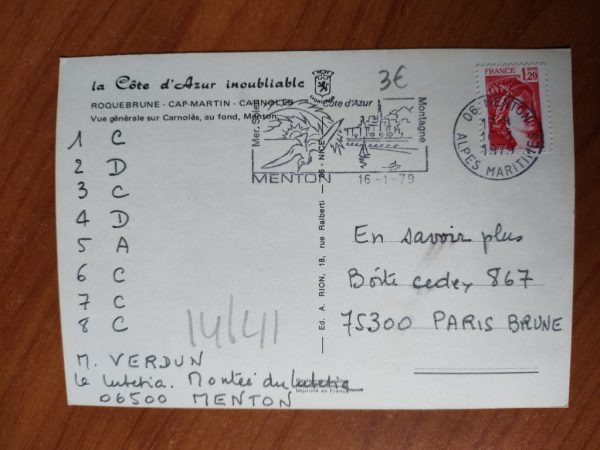 la Côte d'Azur inoubliable
ROQUEBRUNE - CAP-MARTIN - CARNOLÈS
Vue générale sur Carnolès, au fond, Menton.
1 C
2 D
3 C
4 D
5 A
6 C
7 C
8 C
14/6/41
M. VERDUN
Le Lutetia. Montée du Lutetia
06500 MENTON
Imprimé en France
Ed. A. RION, 18, rue Raiberti - 06 - NICE
3€
Mer, Soleil
Côte d'Azur
Montagne
MENTON 16-1-79
FRANCE
1,20
06 MENTON
1979
ALPES MARITIMES
En savoir plus
Boîte cedex 867
75300 PARIS BRUNE